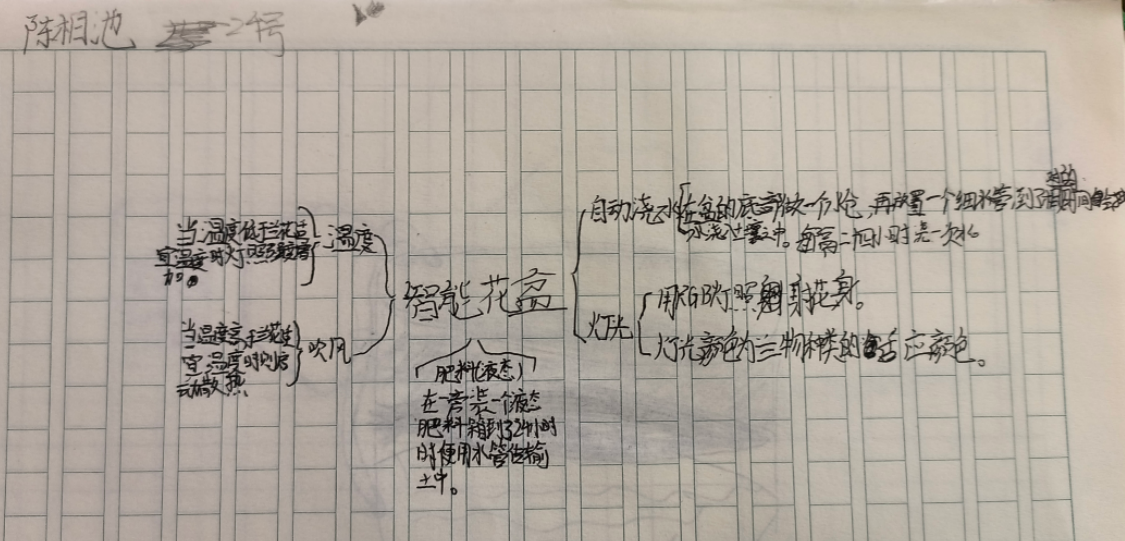 陈相池 24号
自动浇水 在盆的底部做一个水仓,再放置一个细水管到了时间
水浇土壤之中。每隔二四小时浇一次水
智能花盆
灯光
用RGB灯照射花身。
灯光颜色为兰物种类的适应颜色。
温度
当温度低于兰花适
宜温度时灯照
加。
吹风
当温度高于兰花适
宜温度时
动散热
肥料(液态)
在一旁装一个液态
肥料箱到了24小时
时便用水管传输
土中。